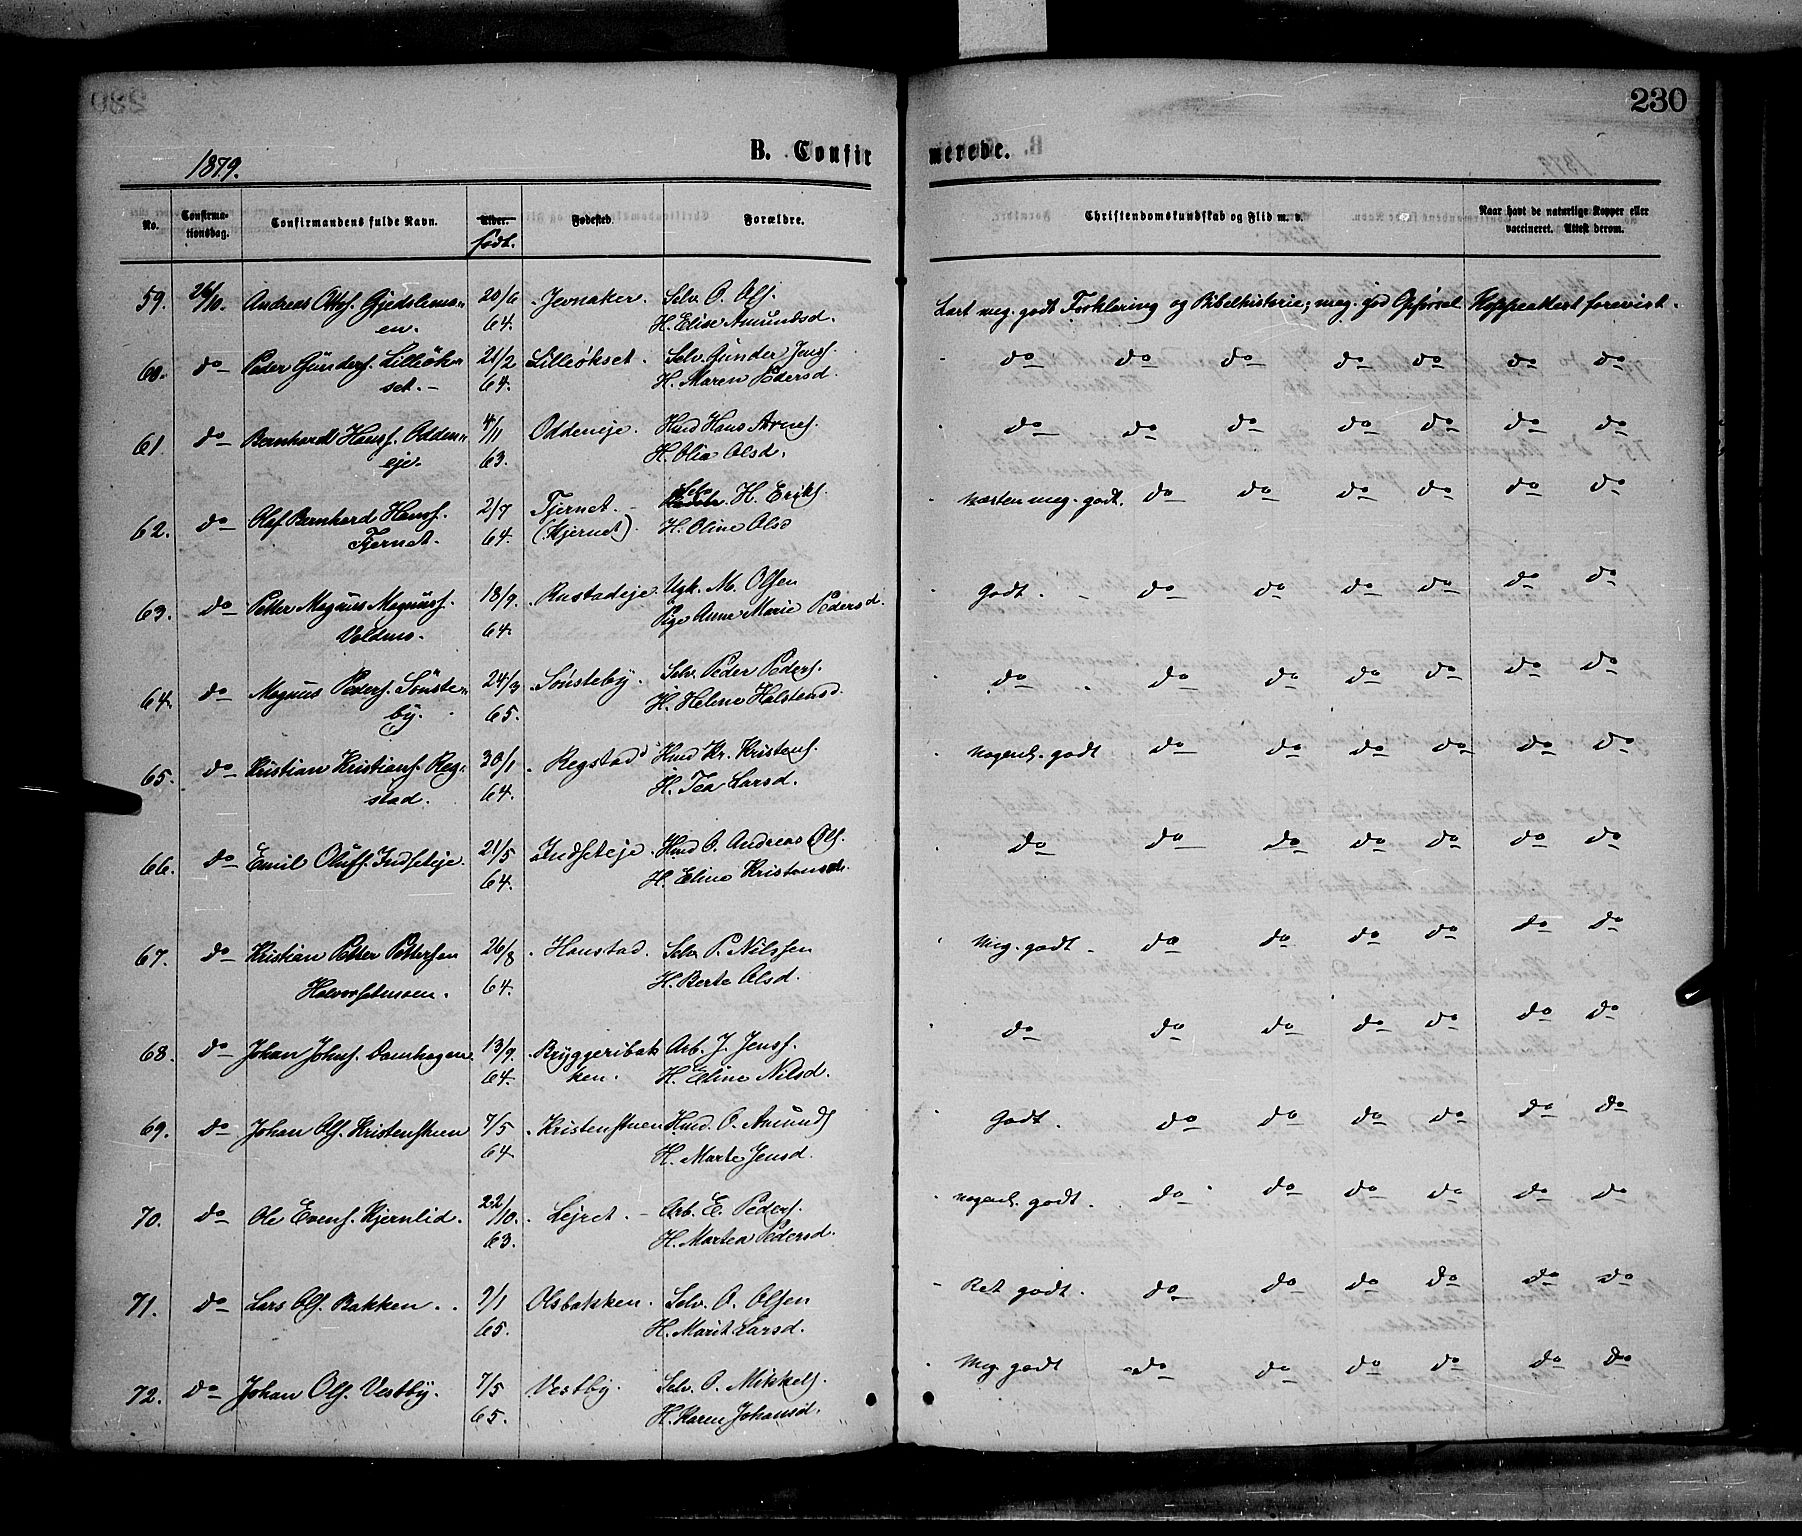 230
B. Confirmerede.
1879.
No. Confirmationsdag. Confirmandens fulde Navn. Alder. født. Fødested. Forældre. Christendomskundskab og Flid m. v. Naar havt de naturlige Kopper eller vaccineret. Attest derom.
59. 26/10. Andreas Ottos. Gjedslemo- 20/6 Jevnaker. Selv. O. Ols. Læst meg. godt Forklaring og Bibelhistorie; meg. god Opførsel. Koppeattest forevist.
en. 64. H. Elise Amundsd.
60. do Peder Gunders. Lilleök- 21/2 Lilleökset. Selv. Gunder Jens. do do do do do do do
set. 64. H. Maren Pedersd.
61. do Bernhard Hans. Odden- 4/11 Oddeneje. Husd Hans Arnes. do do do do do do do
eje. 63. H. Olia Olsd.
62. do Olaf Bernhard Hans. 2/7 Tjernet. Selv. H. Eriks. næsten meg. godt. do do do do do do
Tjernet. 64. (Kjernet). H. Oline Olsd
63. do Petter Magnus Magnuss. 18/9 Rustadeje. Ugk. M. Olsen Godt. do do do do do do
Voldmo. 64. Pige Anne Marie Pedersd.
64. do Magnus Peders. Sönste- 24/3 Sönsteby. Selv. Peder Peders. do do do do do do do
by. 65. H. Helene Halstensd.
65. do Kristian Kristians. Reg- 30/1 Regstad Husd Kr. Kristens. nogenl. godt do do do do do do
stad. 64. H. Tea Larsd.
66. do Emil Olufs. Indseteje. 21/5 Indseteje. Husd O. Andreas Ols. do do do do do do do
64. H. Eline
67. do Kristian Petter Pettersen 26/8 Honstad. Selv. P. Nilssen Meg. godt. do do do do do do
Halvorsetmoen. 64. H. Berte Olsd.
68. do Johan Johns. Damhagen. 13/9 Bryggeribak Arb. J. Jens. do do do do do do do
64. ken. H. Eline Nilsd.
69. do Johan Ols. Kristenstuen 7/5 Kristenstuen Husd. O. Amunds Godt. do do do do do do
64. H. Marte Jensd.
70. do Ole Evens. Kjernlid. 22/10. Lejret. Arb. E. Peders. nogenl. godt. do do do do do do
63. H. Martea Pedersd.
71. do Lars Ols. Bakken. 9/1 Olsbakken. Selv. O. Olsen Ret godt. do do do do do do
65. H. Marit Larsd.
72. do Johan Ols. Vestby. 7/5 Vestby. Selv. O. Mikkels. Meg godt do do do do do do
65. H. Karen Johansd.